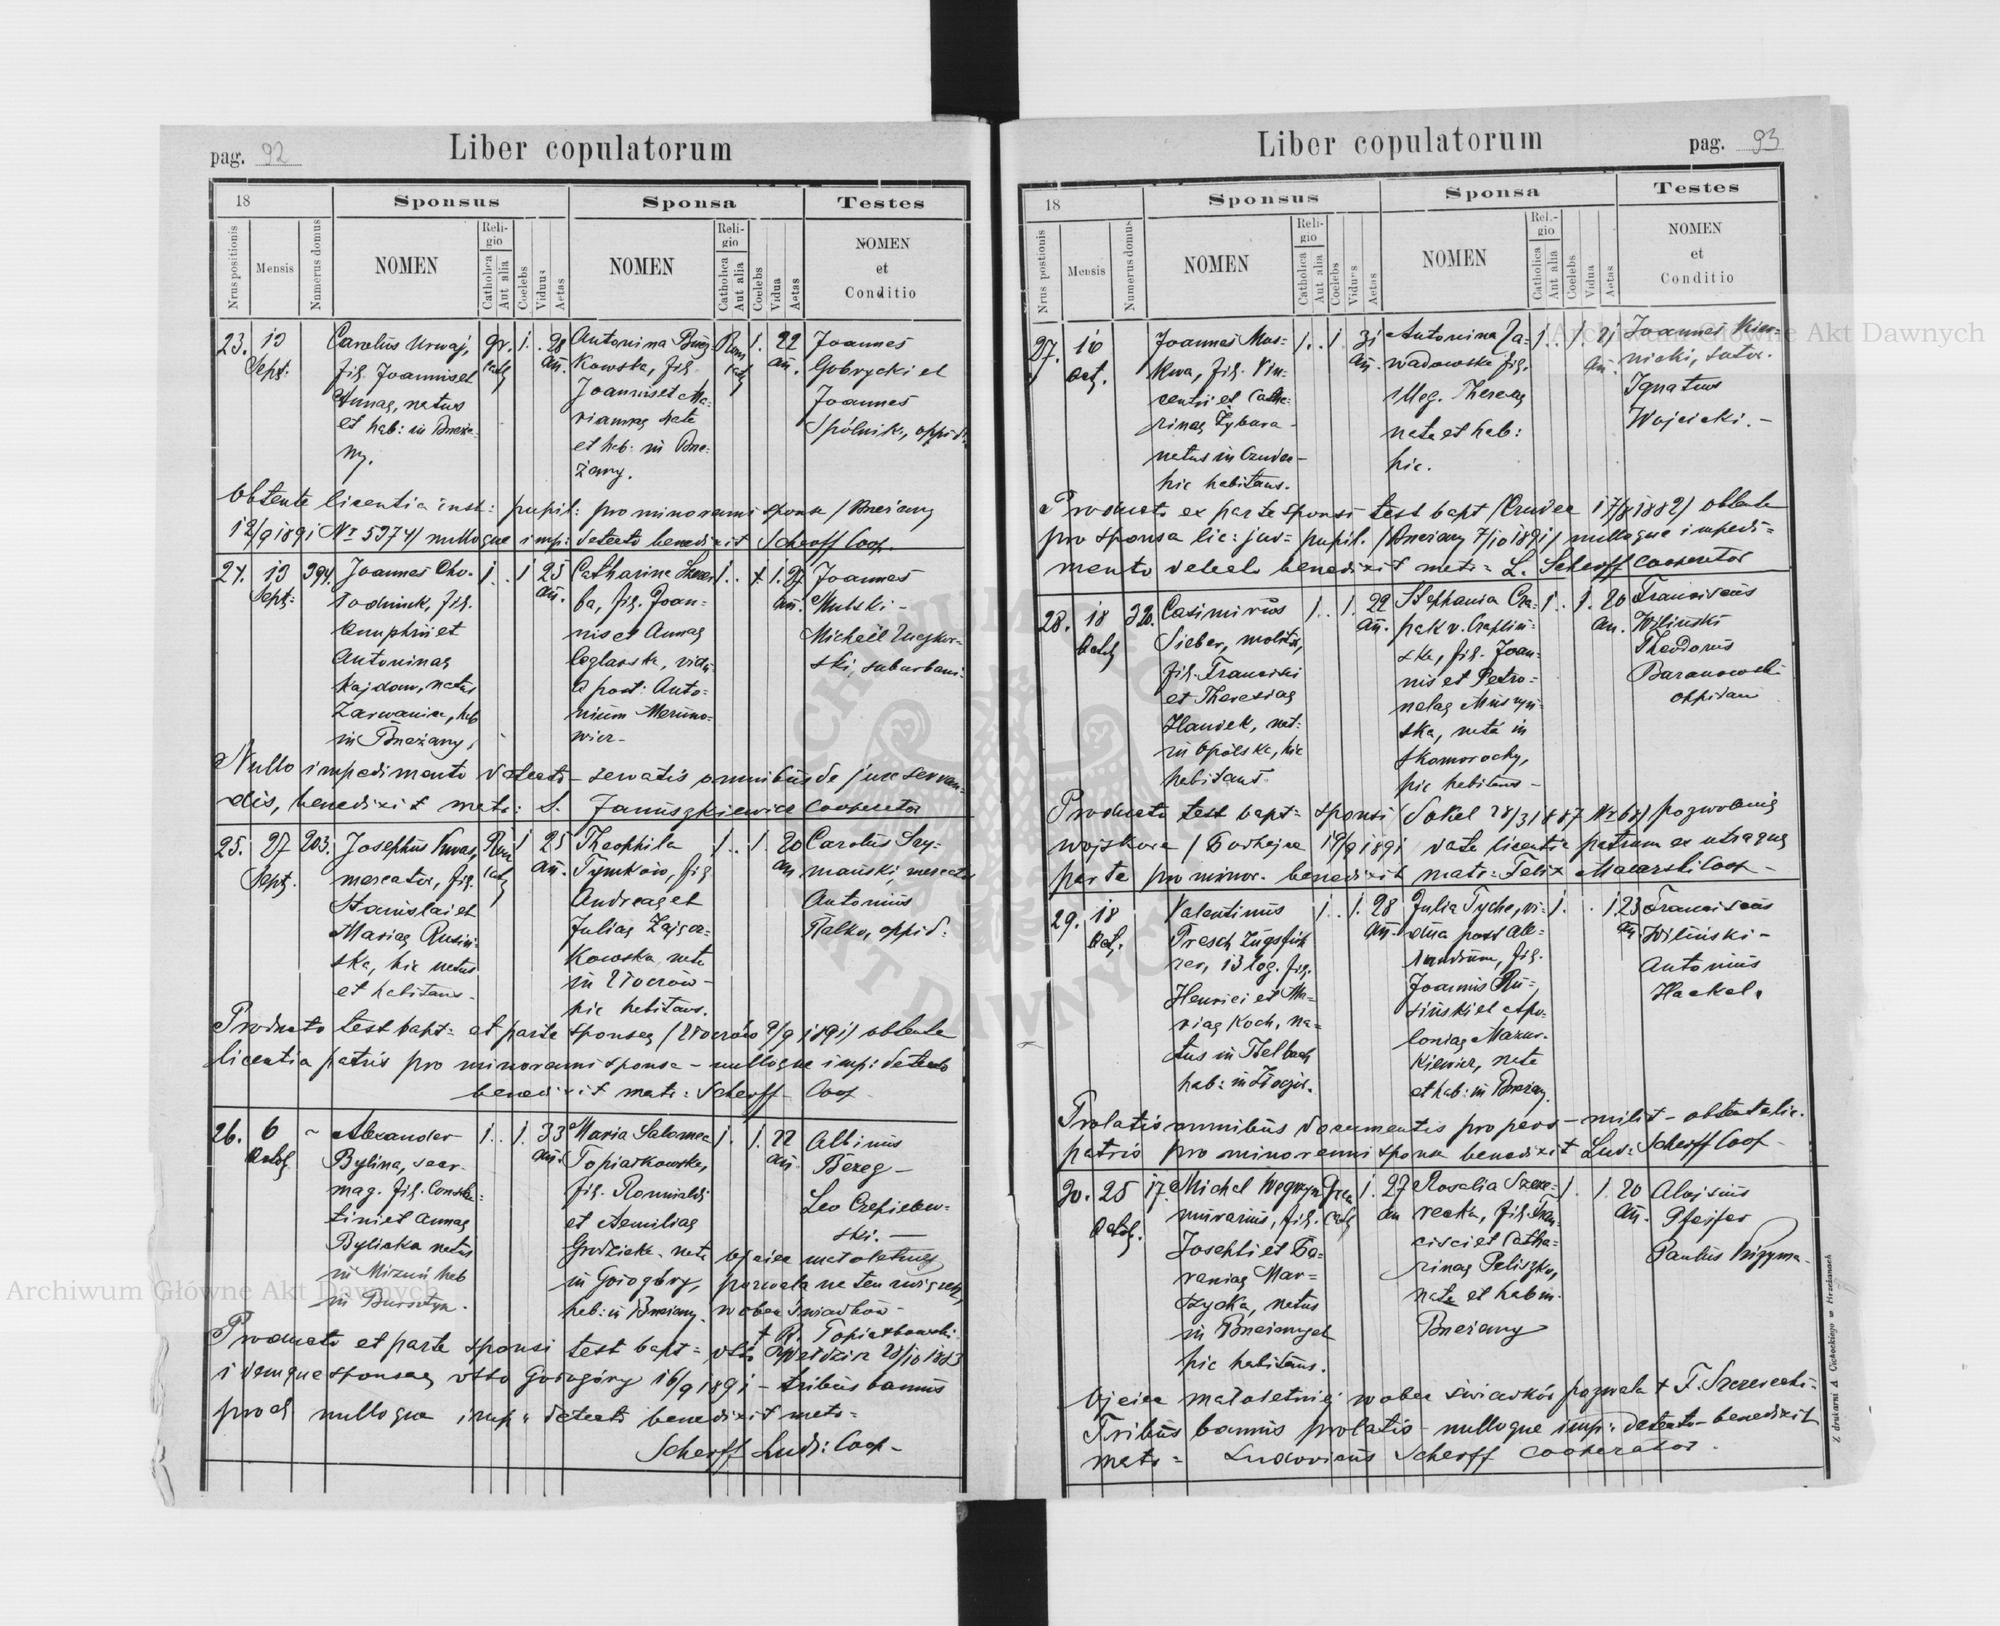 pag. 92
Liber copulatorum
18
Sponsus
Sponsa
Testes
Nrus positionis
Mensis
Numerus domus
NOMEN
Religio
Catholica
Aut alia
Coelebs
Viduus
Aetas
NOMEN
Religio
Catholica
Aut alia
Coelebs
Vidua
Aetas
NOMEN
et
Conditio
23. 13 Sept:
Carolus
fil. Joannis et
Annae, natus
et hab: in Brzeża-
ny.
gr. cath
1. 28 an.
Antonina
kowska, fil.
Joannis et Ma-
rianna nata
et hab: in Brze-
żany.
Rom cath
1. 22 an.
Joannes
Gobrycki et
Joannes
Spólnik, oppid.
Obtenta licentia inst: pupil: pro minorenni sponsa / Brzeżany
12/9 1891 Nr 5374/ nulloque imp: detecto benedixit Scherff Coop.
24. 13 Sept: 394.
Joannes Cho-
fil.
Onuphrii et
Antoninae
Kajdan, natus
Zarwanica, hab
in Brzeżany.
1. . 1 25 an.
Catharina
ba, fil. Joan-
nis et Annae
vidu-
a post: Anto-
nium
1. 27 an.
Joannes
Kubski -
Michael
ski, suburbani.
Nullo impedimento detecto - servatis omnibus de jure servan-
dis, benedixit matr: S. Januszkiewicz Cooperator
25. 27 Sept. 203.
Josephus Kwas,
mercator, fil.
Stanislai et
Mariae Rusin-
ska, hic natus
et habitans.
Rom cath
1 25 an.
Theophila
Tymków, fil
Andreae et
Juliae Zającz-
kowska nata
in
hic habitans.
1. . 1. 20 an
Carolus Szy-
mański, mercator
Antonius
Falko, oppid.
Producto test bapt: ex parte sponsae 9/9 1891) obtenta
licentia patris pro minorenni sponsa - nulloque imp: detecto
benedixit matr: Scherff Coop.
26. 6 Octob
Alexander
Bylina,
mag. fil. Constan-
tini et Annae
Bylicka natus
in Mizuń hab
in Bursztyn.
1. . 1. 33 an.
Maria Salomea
Topiarkowska,
fil. Romualdi
et Aemiliae
Grodzicka. nata
in Gołogóry,
hab: in Brzeżany.
1. . 1. 22 an.
Albinus
Bereg -
Leo Czepielew-
ski. -
Ojciec małoletniej
pozwala na ten związek,
wobec świadków -
+ R. Topiarkowski.
Producto ex parte sponsi test bapt: 28/10 1883
idemque sponsae Gołogóry 16/9 1891 - tribus bannis
nulloque imp: detecto benedixit matr:
Scherff Ludv: Coop.
Liber copulatorum
pag. 93
18
Sponsus
Sponsa
Testes
Nrus postionis
Mensis
Numerus domus
NOMEN
Religio
Catholica
Aut alia
Coelebs
Viduus
Aetas
NOMEN
Rel.-gio
Catholica
Aut alia
Coelebs
Vidua
Aetas
NOMEN
et
Conditio
27. 10 Oct.
Joannes Mos-
kwa, fil. Vin-
centii et Catha-
rinae Zybura -
natus in Czudec -
hic habitans.
1. . 1 31 an.
Antonina Za-
wadowska fil.
illeg. Theresae
nata et hab:
hic.
1. . 1 21 an.
Joannes Kier-
nicki, sutor.
Ignatius
Wojcicki. -
Producto ex parte sponsi test bapt (Czudec 17/8 1882) obtenta
pro sponsa lic: jud- pupil. (Brzeżany 7/10 1891) nulloque impedi-
mento detecto benedixit matr: L. Scherff Cooperator
28. 18 Octob 320.
Casimirus
Sieber,
fil. Francisci
et Theresiae
Handek, nat-
in Opolska, hic
habitans.
1. . 1. 22 an.
Stephania Cza-
pak v. Czaplin-
ska, fil. Joan-
nis et Petro-
nelae Muszyń-
ska, nata in
Skomorochy,
hic habitans -
1. . 1. 20 an.
Franciscus
Wiliński
Theodorus
Baranowski
oppidan
Producto test bapt: sponsi (Sokal 28/3 1887 Nr 68) pozwolenia
wojskowa / Podhajce 19/9 1891 data licentia patrum ex utraque
parte pro minor. benedixit matr: Felix Macarski Coop -
29. 18 Oct.
Valentinus
Presch Zugsfüh
rer, 13 fil.
Henrici et Ma-
riae Koch, na-
tus in
hab: in Złoczów.
1. . 1. 28 an.
Julia Tycho, vi-
dua post Ale-
xandrum, fil.
Joannis Ru-
sinski et Apo-
loniae Mazur-
kiewicz, nata
et hab: in Brzeżany.
1. . . 1. 23 an.
Franciscus
Wiliński -
Antonius
Haekel.
Prolatis omnibus documentis pro pers - milit - obtenta lic.
patris pro minorenni sponsa benedixit Lud: Scherff Coop -
30. 25 Octob. 17.
Michael Węgrzyn
murarius, fil.
Josephi et Ba-
reniae Mar-
tycka, natus
in Brzeżany et
hic habitans.
Graec cath
1. 27 an
Rosalia Szcze-
recka, fil. Fran-
cisci et Catha-
rinae Peliszko,
nata et hab in
Brzeżany
1. . 1. 20 an.
Aloisius
Pfeifer
Paulus Krzyma-
Ojciec małoletniej wobec świadków pozwala + F. Szczerecki.
Tribus bannis prolatis - nulloque imp: detecto - benedixit
matr: Ludovicus Scherff Cooperator.
Z drukarni A. Cichockiego w Brzeżanach
Archiwum Główne Akt Dawnych
Archiwum Główne Akt Dawnych
ARCHIWUM GŁÓWNE AKT DAWNYCH